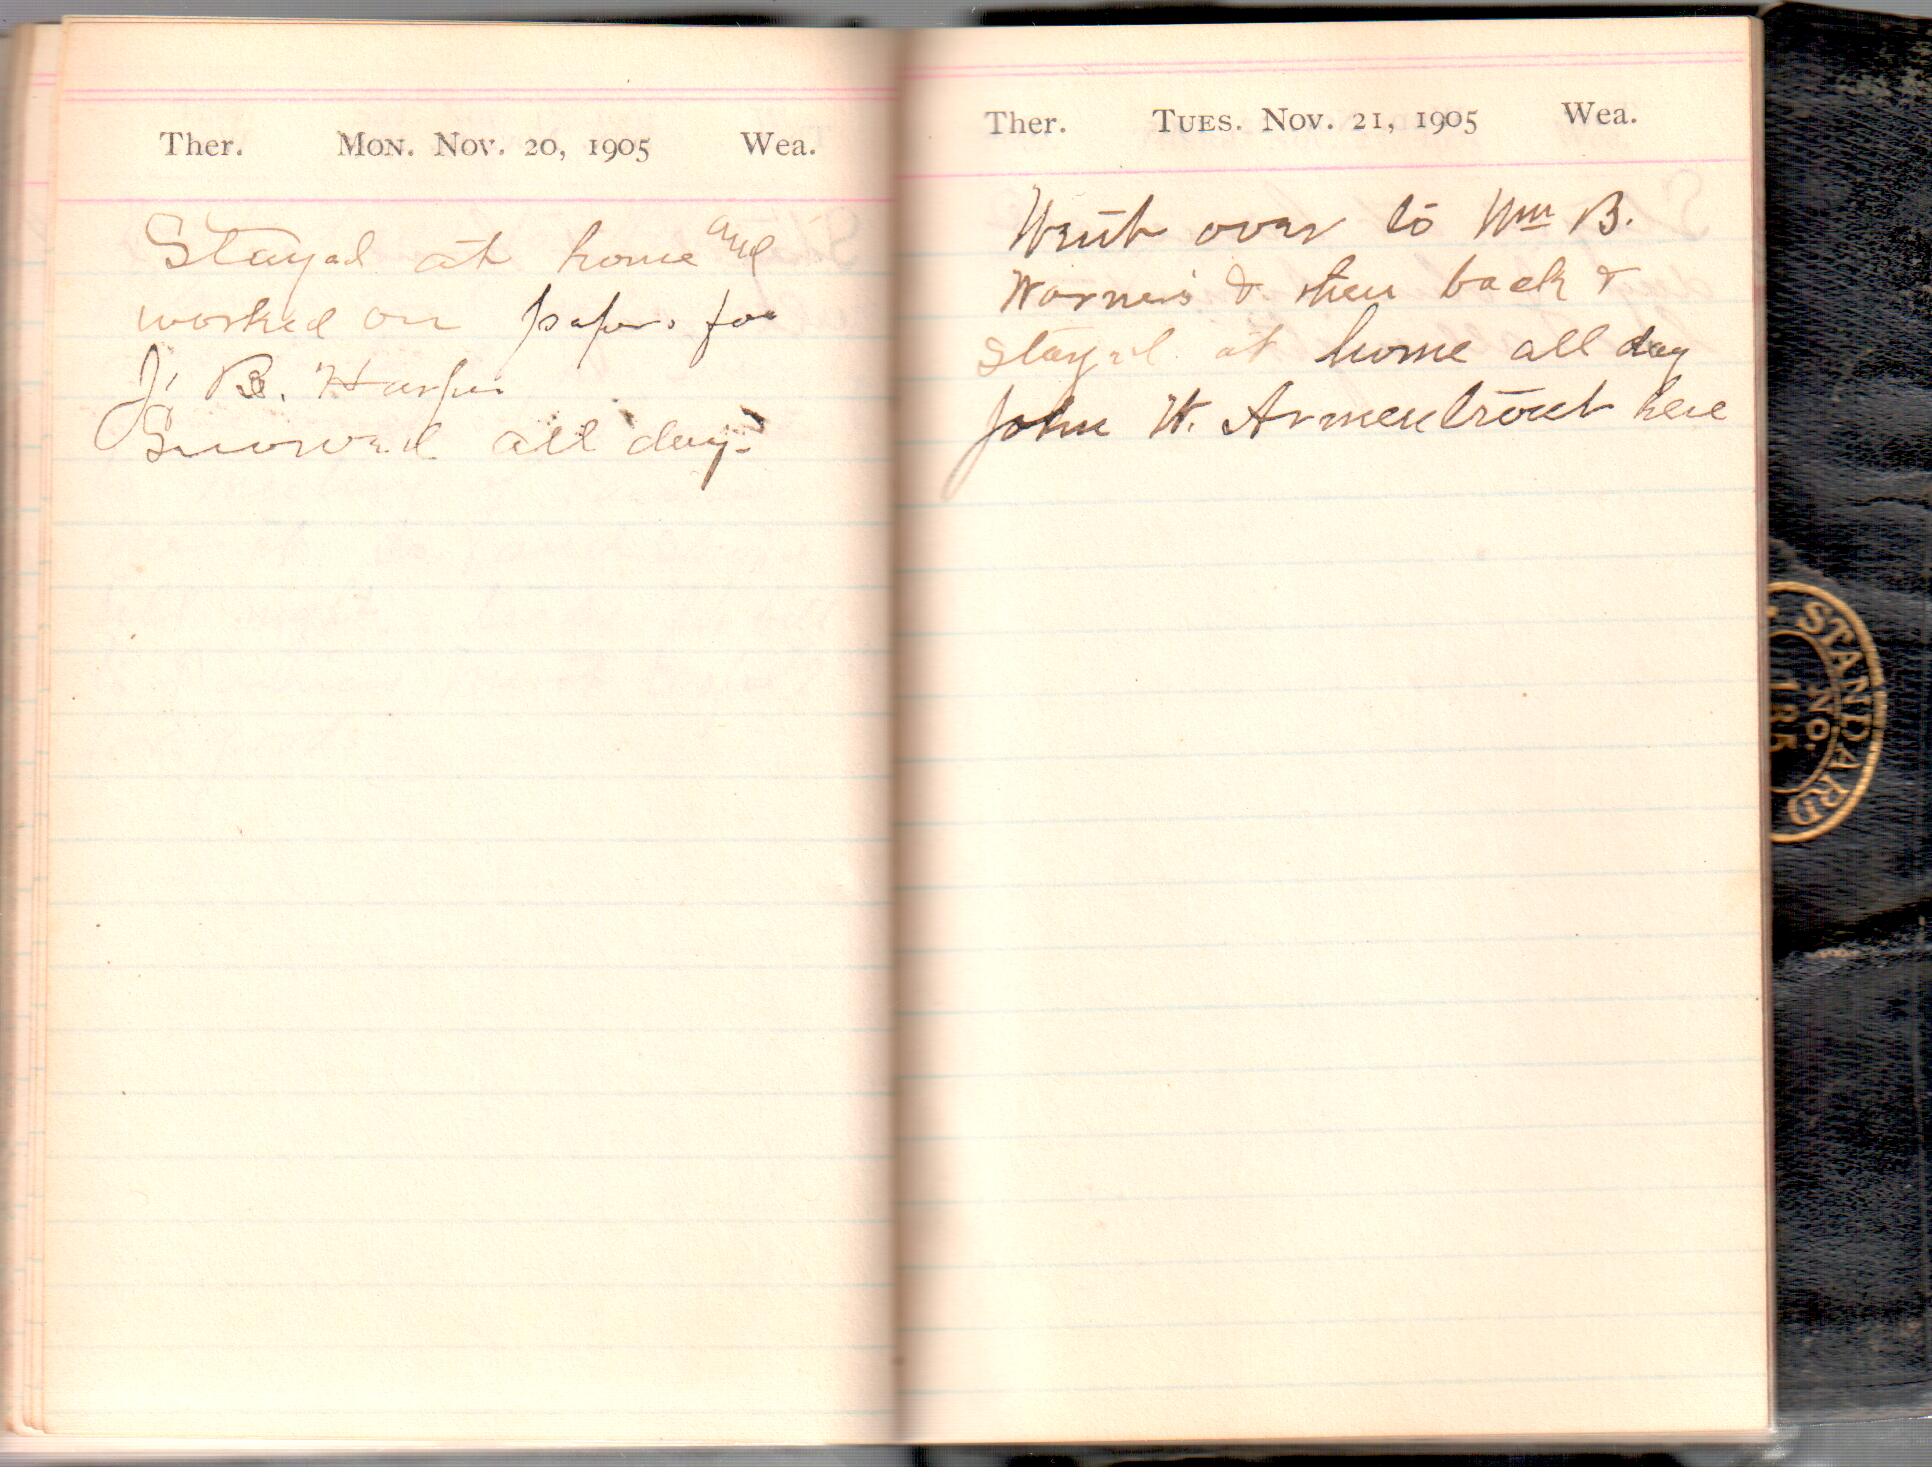 Ther. Mon. Nov. 20, 1905 Wea.
Stayed at home and
worked on papers for
J. B. Harper
Snowed all day.
Ther. Tues. Nov. 21, 1905 Wea.
Went over to Wm B.
Warner's & then back &
stayed at home all day
John W. Armentrout here
STANDARD
No.
185